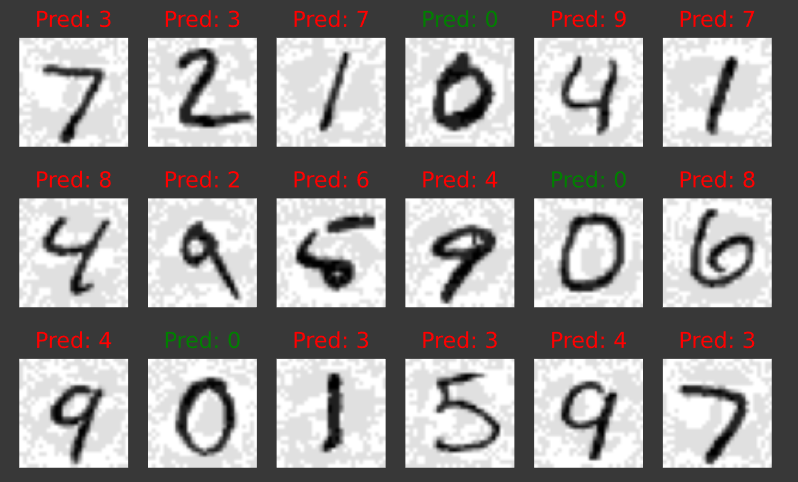 Pred: 3 Pred: 3 Pred: 7 Pred: 0 Pred: 9 Pred: 7
7 2 1 0 4 1
Pred: 8 Pred: 2 Pred: 6 Pred: 4 Pred: 0 Pred: 8
4 9 5 9 0 6
Pred: 4 Pred: 0 Pred: 3 Pred: 3 Pred: 4 Pred: 3
9 0 1 5 9 7